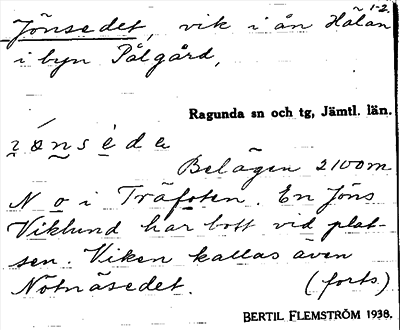 1-2.
Jönsedet, vik i ån Hålan
i byn Pålgård,
Ragunda sn och tg, Jämtl. län.
Belägen 2100 m
N o i Träfoten. En Jöns
Viklund har bott vid plat-
sen. Viken kallas även
Notnäsedet. (forts)
BERTIL FLEMSTRÖM 1938.